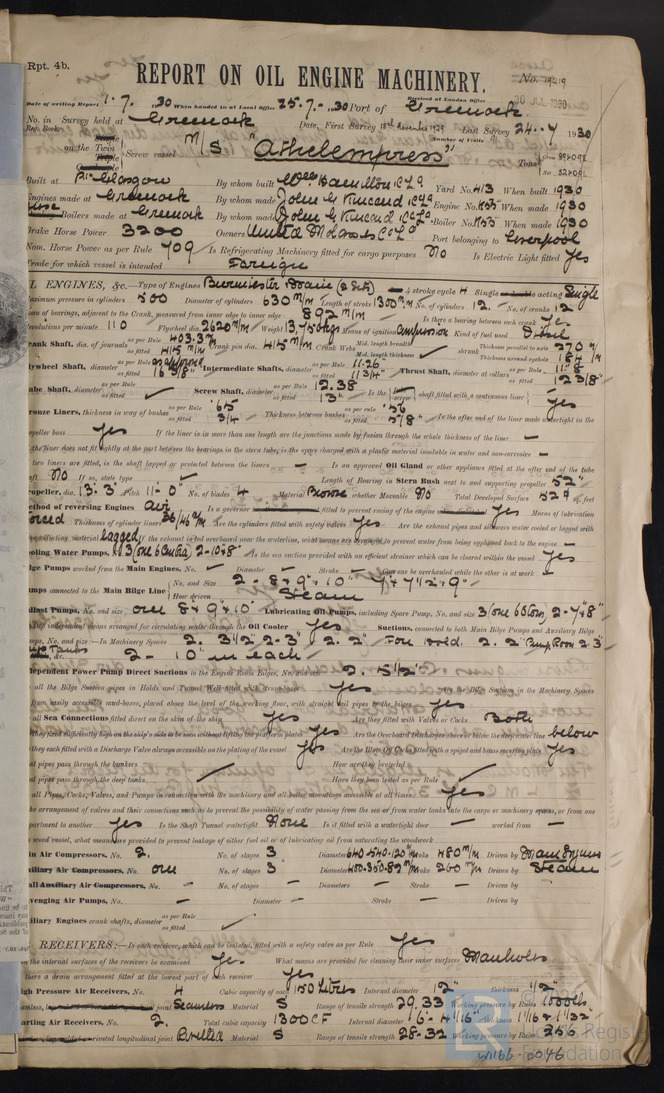 Rpt. 4b.
REPORT ON OIL ENGINE MACHINERY.
No. 19219
Date of writing Report 1. 7. 1930 When handed in at Local Office 25.7. 1930 Port of Greenock
Received at London Office 30 JUL 1930
No. in Survey held at Greenock Date, First Survey 18th November 1929 Last Survey 24.. 7 1930
Reg. Book. Number of Visits
on the Twin Screw vessel M/S "Athelempress" Tons Gross Net
Built at Pt. Glasgow By whom built Wm Hamilton & Co Ld Yard No. 413 When built 1930
Engines made at Greenock By whom made John G Kincaid & Co Ld Engine No. K55 When made 1930
Boilers made at Greenock By whom made John G Kincaid & Co Ld Boiler No. K55 When made 1930
Brake Horse Power 3200 Owners United Molasses Co Ld Port belonging to Liverpool
Nom. Horse Power as per Rule 709 Is Refrigerating Machinery fitted for cargo purposes No Is Electric Light fitted Yes
Trade for which vessel is intended Foreign
L ENGINES, &c.—Type of Engines Burmeister & Wain (2 Sets) 4 stroke cycle 4 Single acting Single
Maximum pressure in cylinders 500 Diameter of cylinders 630 m/m Length of stroke 1300 m/m No. of cylinders 12. No. of cranks 12
an of bearings, adjacent to the Crank, measured from inner edge to inner edge 892 m/m Is there a bearing between each crank Yes
Revolutions per minute 110 Flywheel dia. 2620 m/m Weight Means of ignition Compression Kind of fuel used
rank Shaft, dia. of journals as per Rule 403.3 m/m as fitted 415 m/m Crank pin dia. 415 m/m Crank Webs Mid. length breadth Mid. length thickness shrunk Thickness parallel to axis 270 m/m Thickness around eyehole 184 m/m
lywheel Shaft, diameter as per Rule approved as fitted Intermediate Shafts, diameter as per Rule 11.26 as fitted 11 3/4" Thrust Shaft, diameter at collars as per Rule 11.8 as fitted 12 3/8"
ube Shaft, diameter as per Rule as fitted Screw Shaft, diameter as per Rule 12.38 as fitted 13" Is the shaft fitted with a continuous liner Yes
ronze Liners, thickness in way of bushes as per Rule .65 as fitted 3/4 Thickness between bushes as per rule .56 as fitted 5/8" Is the after end of the liner made watertight in the
opeller boss Yes If the liner is in more than one length are the junctions made by fusion through the whole thickness of the liner -
the liner does not fit tightly at the part between the bearings in the stern tube, is the space charged with a plastic material insoluble in water and non-corrosive -
two liners are fitted, is the shaft lapped or protected between the liners - Is an approved Oil Gland or other appliance fitted at the after end of the tube
aft No If so, state type Length of Bearing in Stern Bush next to and supporting propeller 52"
ropeller, dia. 13-3 Pitch 11-0" No. of blades 4 Material Bronze whether Moveable No Total Developed Surface 52.9 sq. feet
ethod of reversing Engines Air Is a governor fitted to prevent racing of the engine Yes Means of lubrication
orced Thickness of cylinder liners 36/46 m/m Are the cylinders fitted with safety valves Yes Are the exhaust pipes and silencers water cooled or lagged with
nducting material Lagged If the exhaust is led overboard near the waterline, what means are arranged to prevent water from being syphoned back to the engine -
ooling Water Pumps, No. 3 Is the sea suction provided with an efficient strainer which can be cleared within the vessel Yes
lge Pumps worked from the Main Engines, No. Diameter Stroke Can one be overhauled while the other is at work -
umps connected to the Main Bilge Line No. and Size How driven Steam
llast Pumps, No. and size one 8 x 9 x 10" Lubricating Oil Pumps, including Spare Pump, No. and size
two independent means arranged for circulating water through the Oil Cooler Yes Suctions, connected to both Main Bilge Pumps and Auxiliary Bilge
umps, No. and size:—In Machinery Spaces 2. 3 1/2" 2-3" 2. 2" Fore Hold. 2. 2" Pump Room 2-3"
2 - 10" in each
dependent Power Pump Direct Suctions to the Engine Room Bilges, No. and size 2. 5 1/2"
all the Bilge Suction pipes in Holds and Tunnel Well fitted with strum-boxes Yes Are the Bilge Suctions in the Machinery Spaces
from easily accessible mud-boxes, placed above the level of the working floor, with straight tail pipes to the bilges Yes
all Sea Connections fitted direct on the skin of the ship Yes Are they fitted with Valves or Cocks Both
they fixed sufficiently high on the ship's side to be seen without lifting the platform plates Yes Are the Overboard Discharges above or below the deep water line below
they each fitted with a Discharge Valve always accessible on the plating of the vessel Yes Are the Blow Off Cocks fitted with a spigot and brass covering plate Yes
at pipes pass through the bunkers How are they protected
at pipes pass through the deep tanks Have they been tested as per Rule
all Pipes, Cocks, Valves, and Pumps in connection with the machinery and all boiler mountings accessible at all times Yes
he arrangement of valves and their connections such as to prevent the possibility of water passing from the sea or from water tanks into the cargo or machinery spaces, or from one
partment to another Yes Is the Shaft Tunnel watertight None Is it fitted with a watertight door - worked from -
wood vessel, what means are provided to prevent leakage of either fuel oil or of lubricating oil from saturating the woodwork
in Air Compressors, No. 2. No. of stages 3 Diameters 640-540-120 m/m Stroke 480 m/m Driven by Main Engines
xiliary Air Compressors, No. one No. of stages 3 Diameters Stroke 260 m/m Driven by Steam
all Auxiliary Air Compressors, No. - No. of stages - Diameters - Stroke - Driven by
avenging Air Pumps, No. - Diameter - Stroke - Driven by
xiliary Engines crank shafts, diameter as per Rule as fitted
RECEIVERS:—Is each receiver, which can be isolated, fitted with a safety valve as per Rule Yes
n the internal surfaces of the receivers be examined Yes. What means are provided for cleaning their inner surfaces Manholes
there a drain arrangement fitted at the lowest part of each receiver Yes
igh Pressure Air Receivers, No. 4 Cubic capacity of each 150 Litres Internal diameter 12" thickness 1/2"
joint Seamless Material S Range of tensile strength 29.33 Working pressure by Rules 1000 lb
arting Air Receivers, No. 2. Total cubic capacity 1300 CF Internal diameter thickness 1 1/16 x 1 1/32"
riveted longitudinal joint Riveted Material S Range of tensile strength 28-32 Working pressure by Rules 356
W1166-0046
Lloyd's Register
Foundation